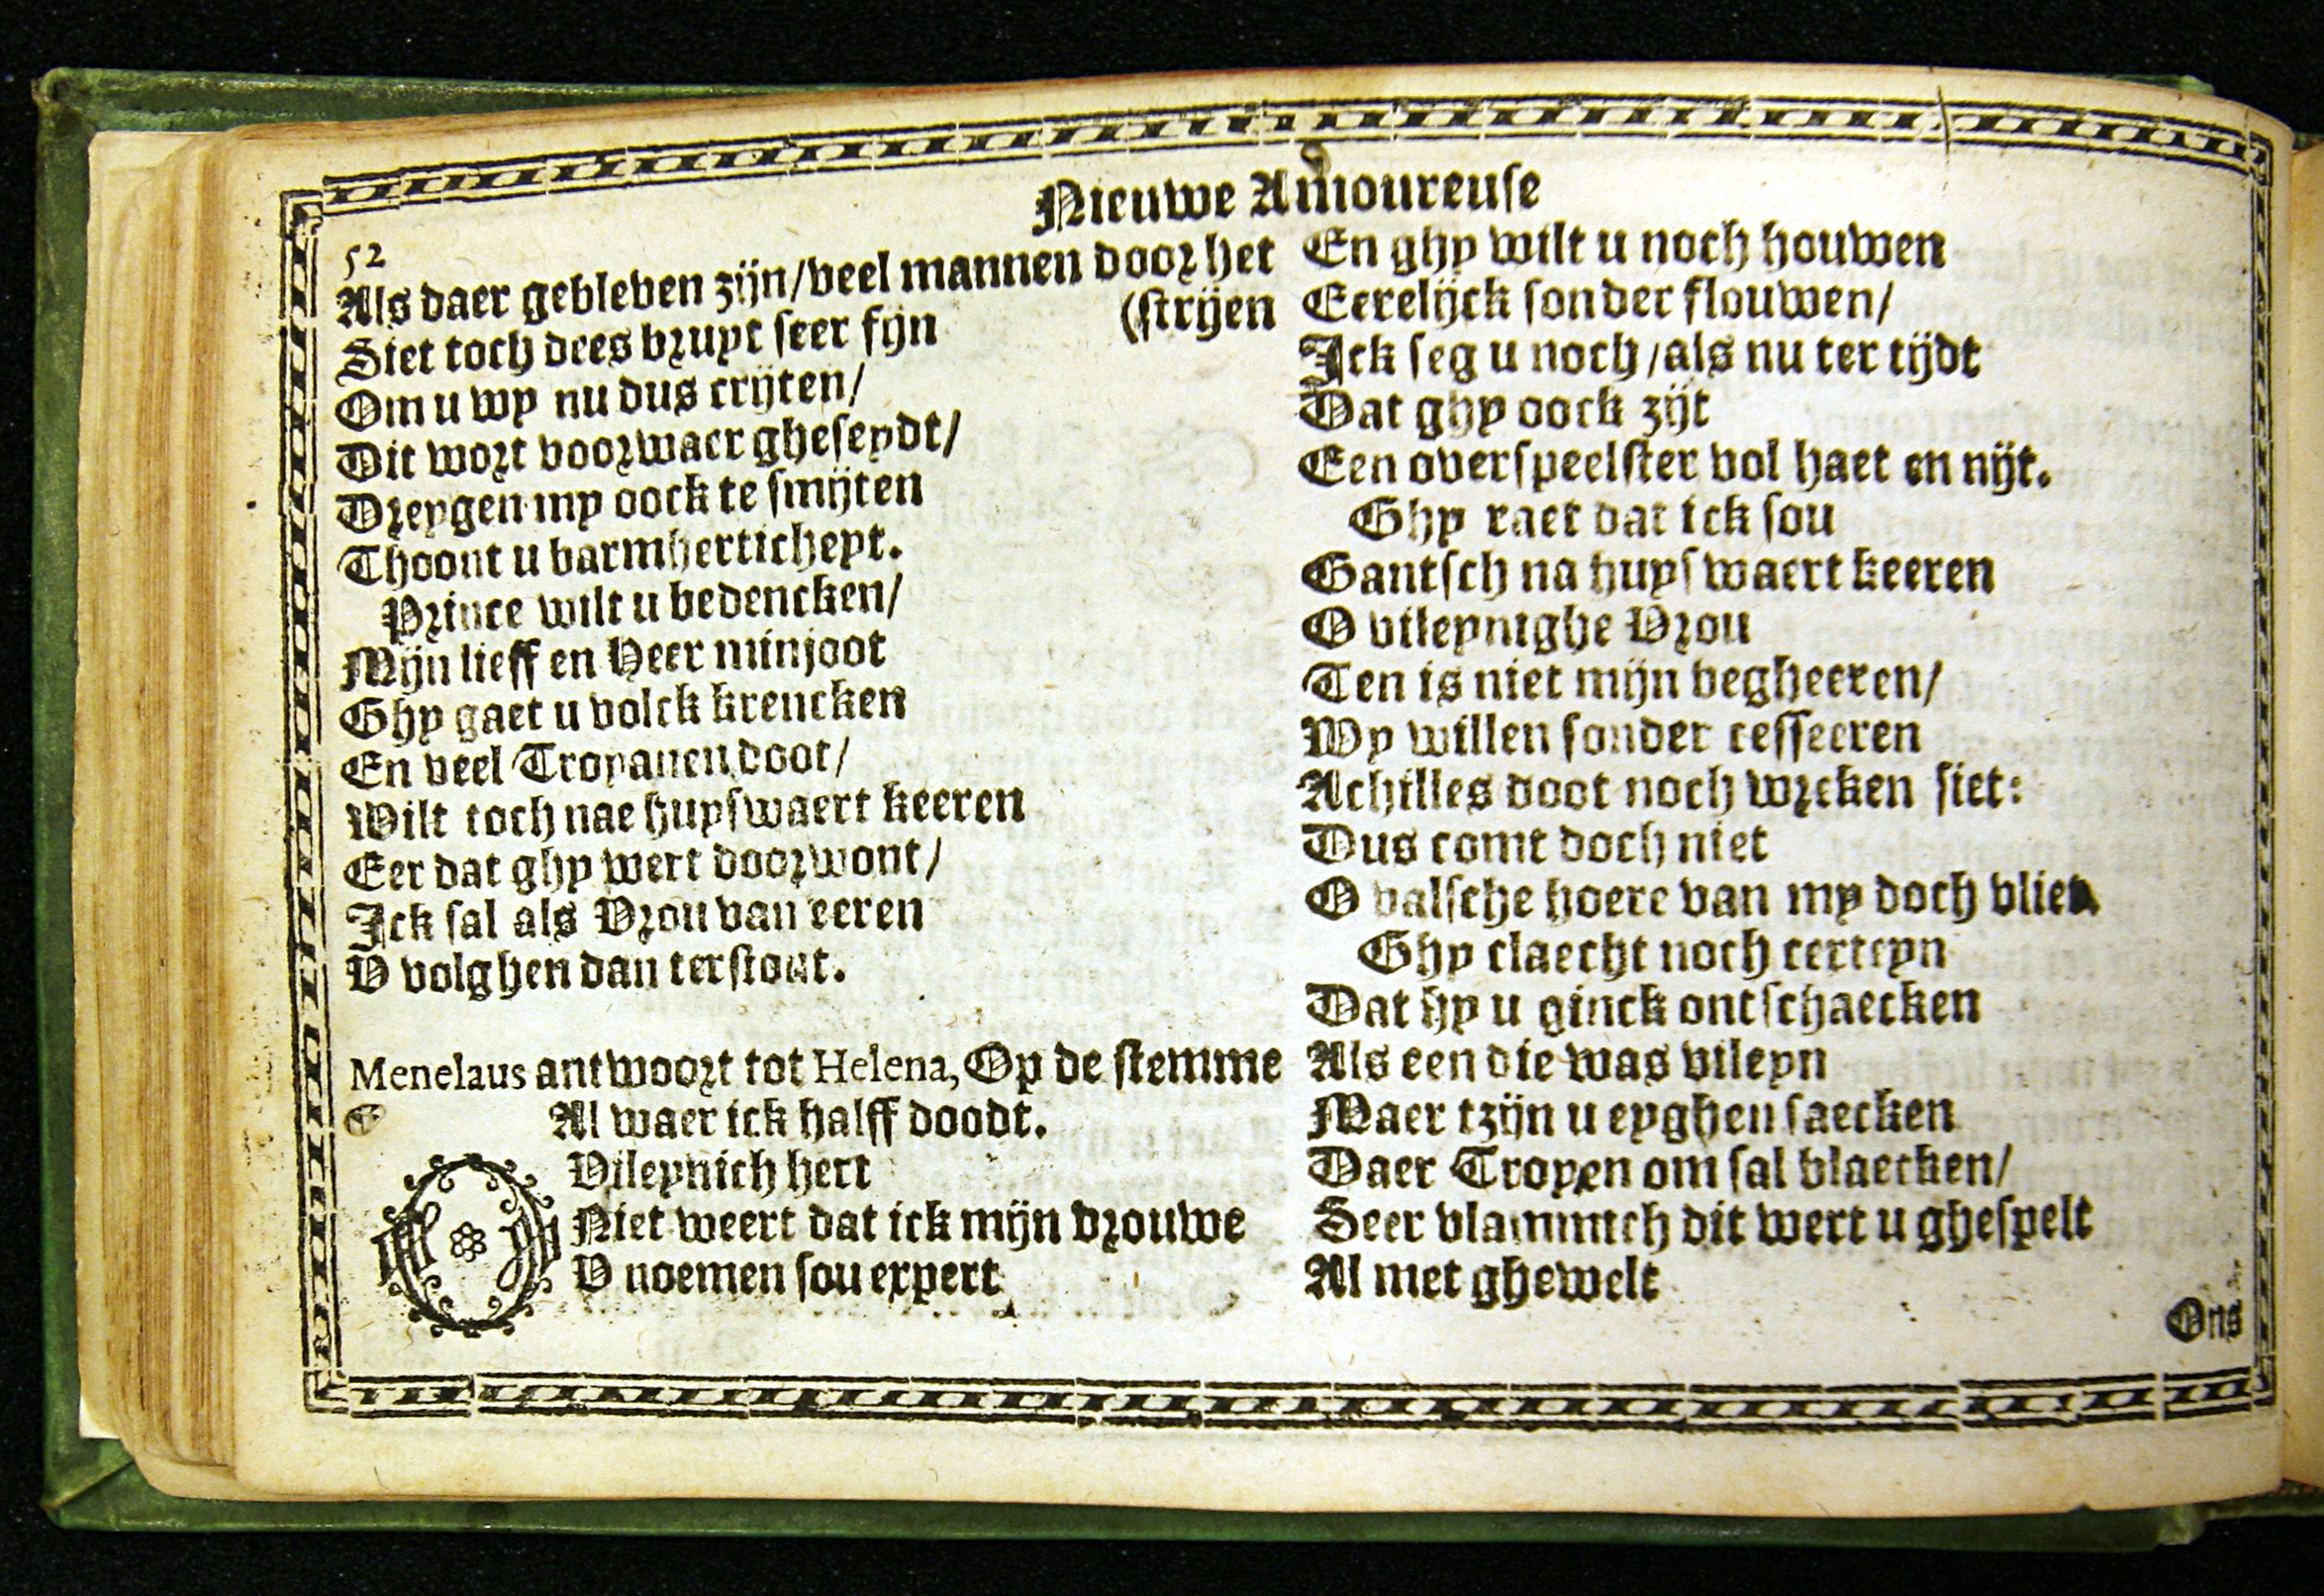 Nieuwe Amoureuse
52
Als daer gebleven zijn/veel mannen door het
(strijen
Siet toch dees bruyt seer fijn
Om u wy nu dus crijten/
Dit wort voorwaer gheseydt/
Dreygen my oock te smijten
Thoont u barmhertichept.
Prince wilt u bedencken/
Mijn lieff en Heer minjoot
Ghy gaet u volck krencken
En veel Troyanen doot/
Wilt toch nae huyswaert keeren
Eer dat ghy wert doorwont/
Ick sal als Vrou van eeren
V volghen dan terstont.
Menelaus antwoort tot Helena, Op de stemme
Al waer ick halff doodt.
O Vileynich hert
Niet weert dat ick mijn vrouwe
V noemen sou expert
En ghy wilt u noch houwen
Eerelijck sonder flouwen/
Ick seg u noch/als nu ter tijdt
Dat ghy oock zijt
Een overspeelster vol haet en nijt.
Ghy raet dat ick sou
Gantsch na huys waert keeren
O vileynighe Vrou
Ten is niet mijn begheeren/
Wy willen sonder cesseeren
Achilles doot noch wreken siet:
Dus comt doch niet
O valsche hoere van my doch vliet.
Ghy claecht noch certeyn
Dat hy u ginck ontschaecken
Als een die was vileyn
Maer tzijn u eyghen saecken
Daer Troyen om sal blaecken/
Seer vlammich dit wert u ghespelt
Al met ghewelt
Ons